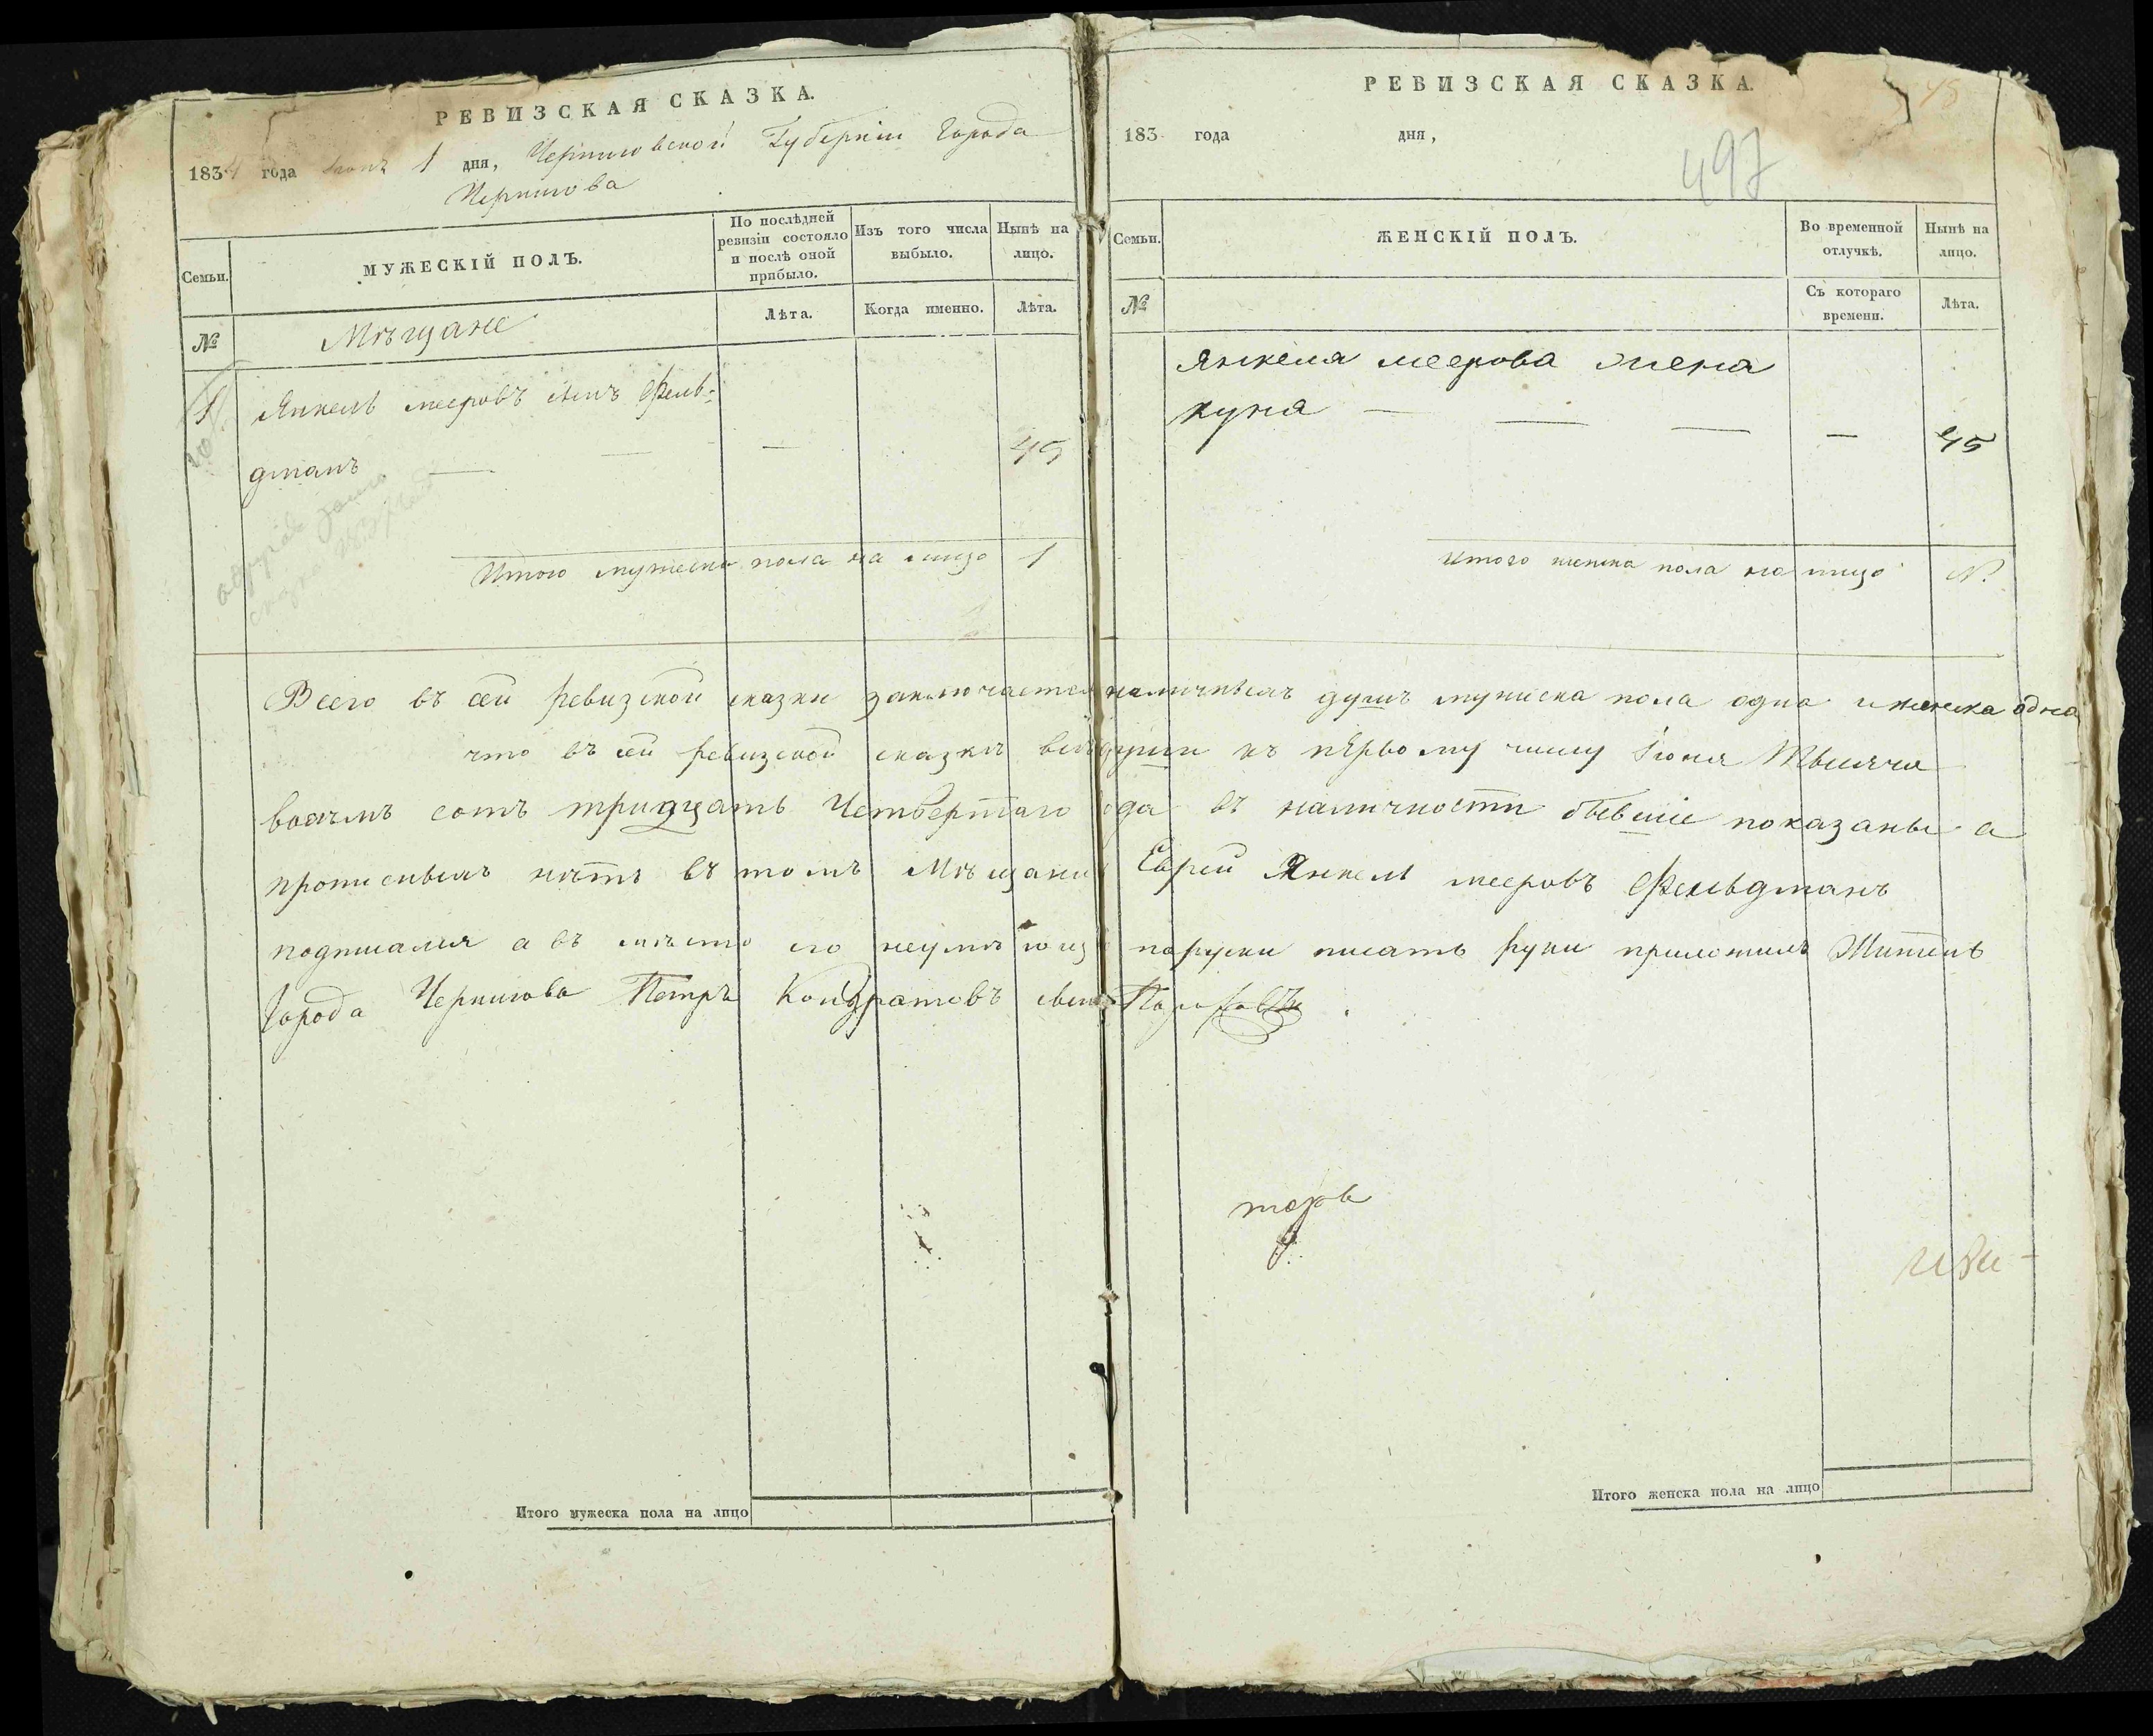 РЕВИЗСКАЯ СКАЗКА.
1834 года Іюня 1 дня, Черниговской Губерніи Города
Чернигова
Семьи.
МУЖЕСКІЙ ПОЛЪ.
По послѣдней ревизіи состояло и послѣ оной прибыло.
Изъ того числа выбыло.
Нынѣ на лицо.
№
Мѣщане
Лѣта.
Когда именно.
Лѣта.
1
Янкель мееровъ сынъ Фель-
дманъ — — — 45
Итого мужеска пола на лицо 1
РЕВИЗСКАЯ СКАЗКА.
48
183 года дня,
497
Семьи.
ЖЕНСКІЙ ПОЛЪ.
Во временной отлучкѣ.
Нынѣ на лицо.
№
Съ котораго времени.
Лѣта.
Янкеля меерова жена
куна — — — — 45
Итого женска пола на лицо
Всего въ сей ревизской сказки заключается наличныхъ душъ мужеска пола одна и женска одна
что въ сей ревизской сказкѣ всѣ души къ первому числу Іюня Тысяча
восемъ сотъ тридцать Четвертаго года въ наличности бывшіе показаны а
прописныхъ нѣтъ въ томъ Мѣщанинъ Еврей Янкель мееровъ Фельдманъ
подписался а въ мѣсто его неумѣющ поруски писать руки приложилъ Житель
Города Чернигова Петръ Кондратовъ сынъ
Итого мужеска пола на лицо
Итого женска пола на лицо